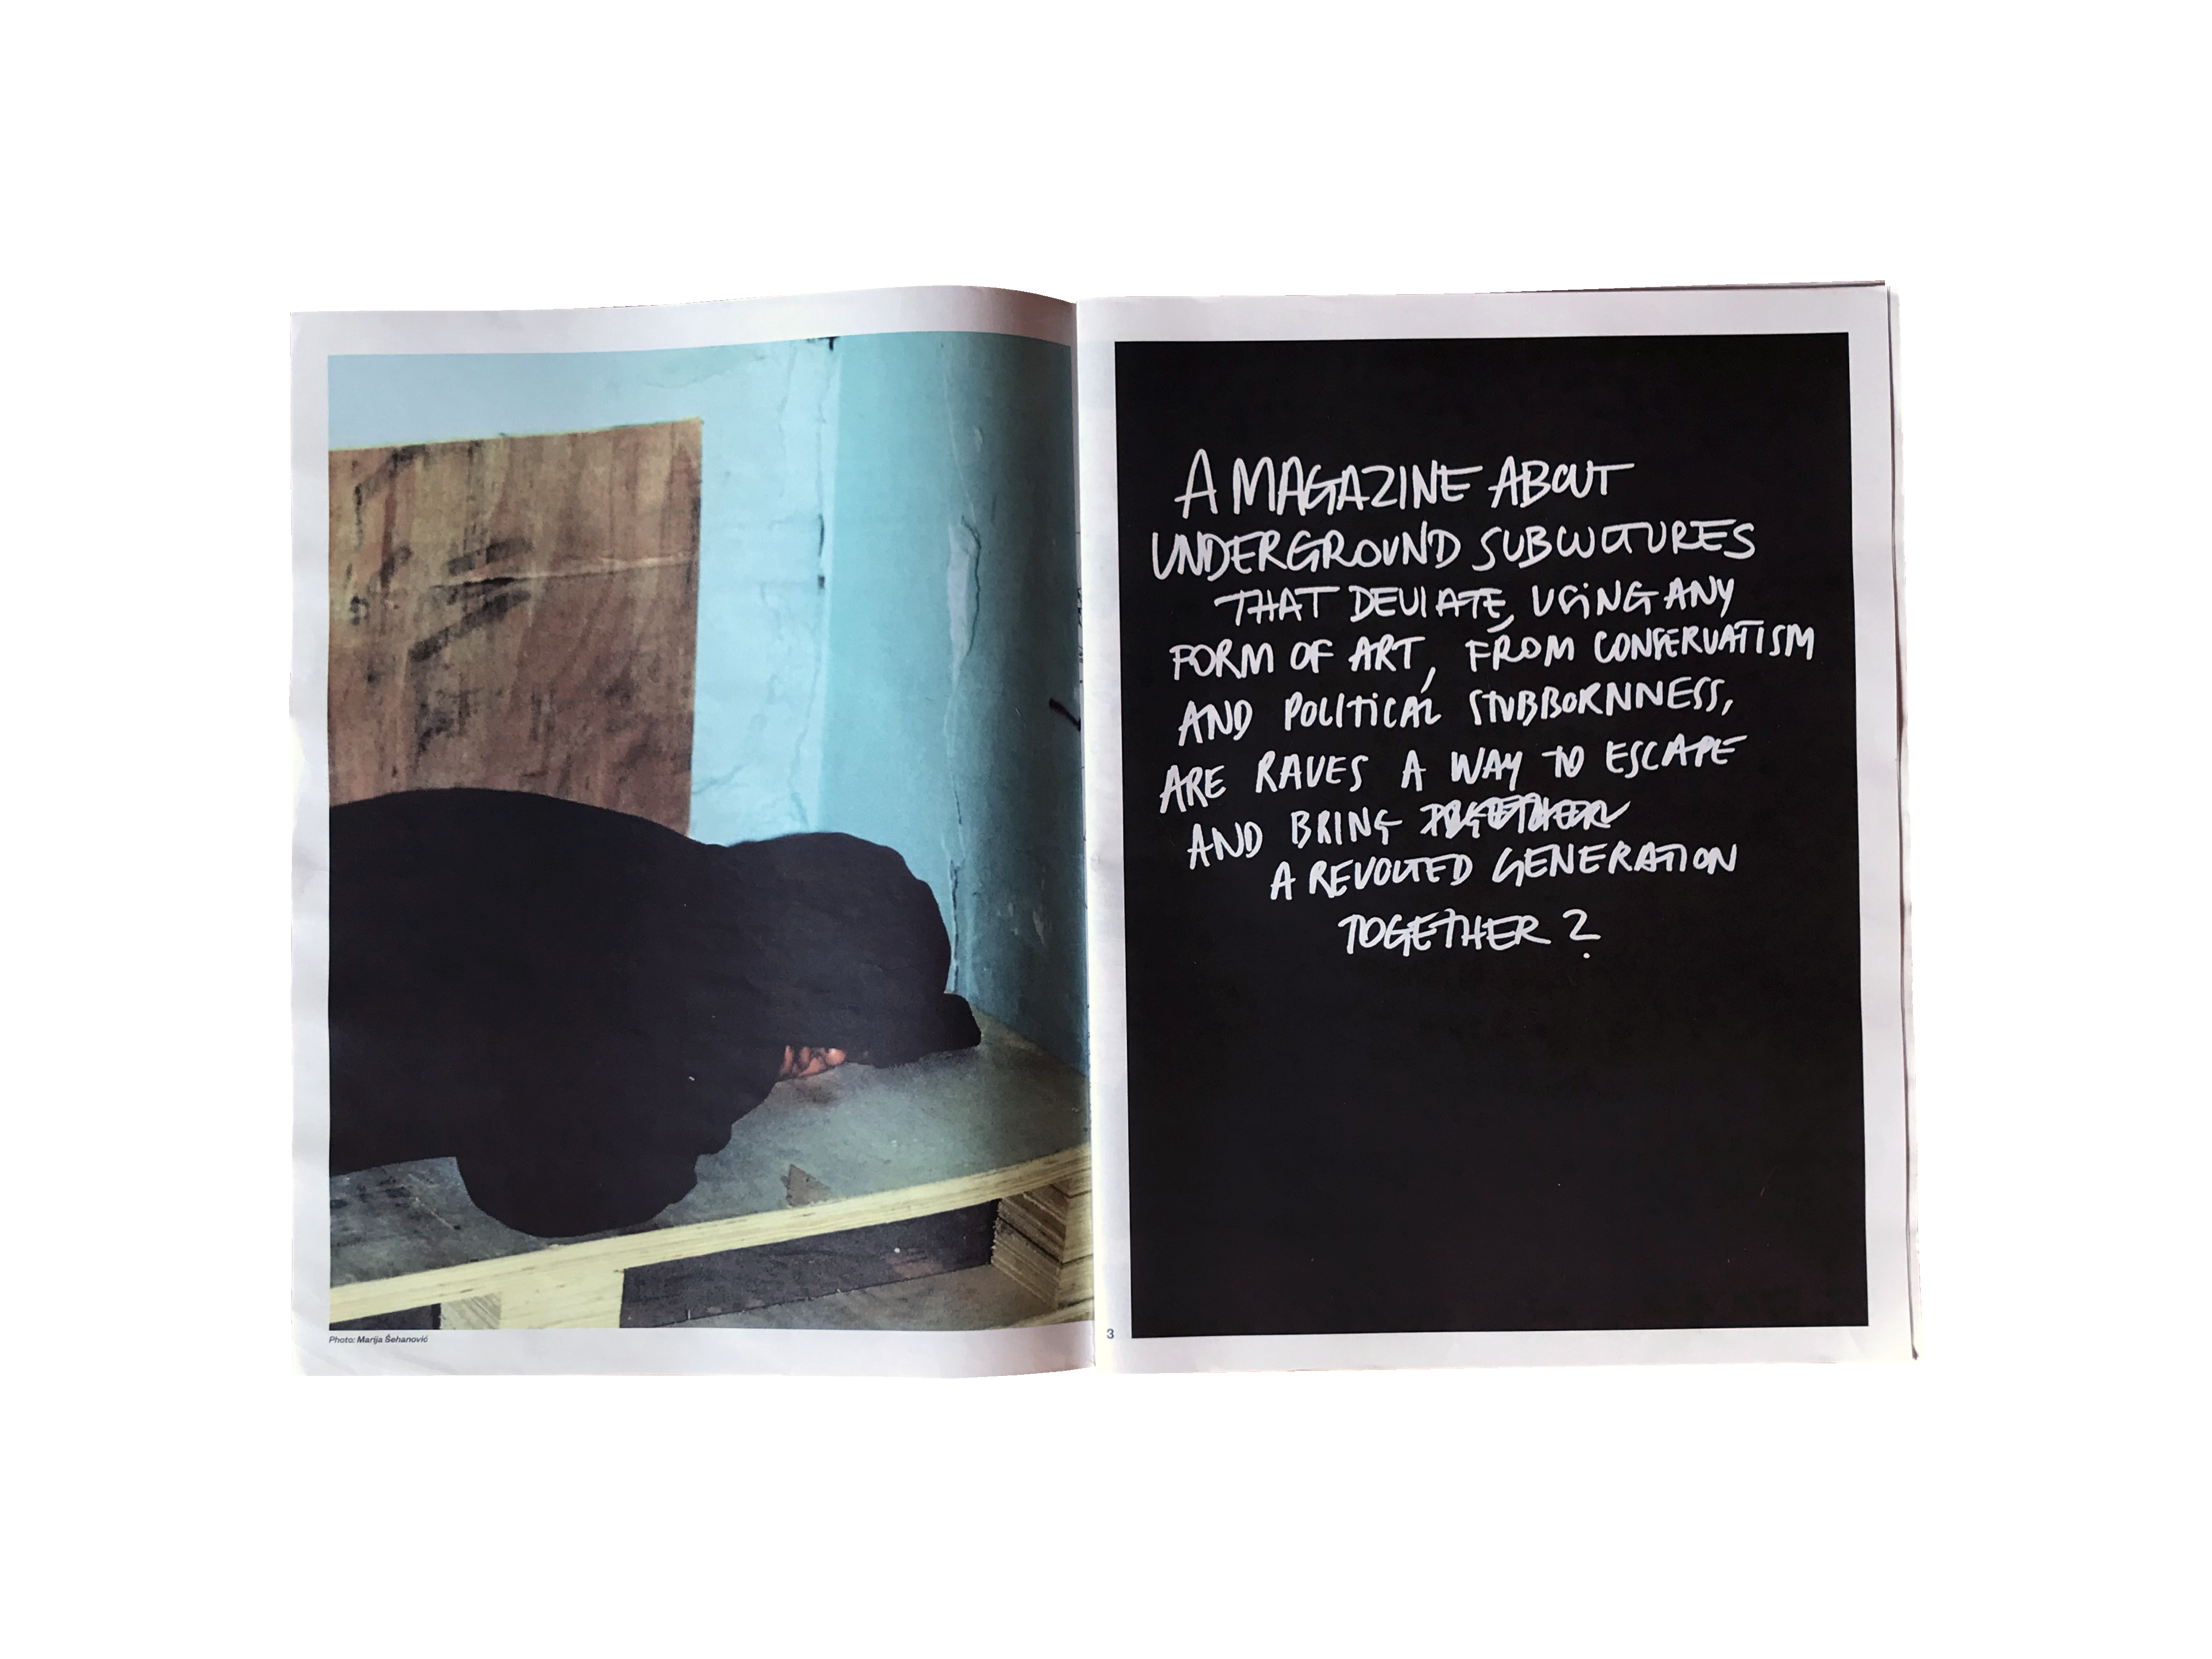 Photo: Marija Šehanović
3
A MAGAZINE ABOUT
UNDERGROUND SUBCULTURES
THAT DEVIATE, USING ANY
FORM OF ART, FROM CONSERVATISM
AND POLITICAL STUBBORNNESS,
ARE RAVES A WAY TO ESCAPE
AND BRING TOGETHER
A REVOLTED GENERATION
TOGETHER ?